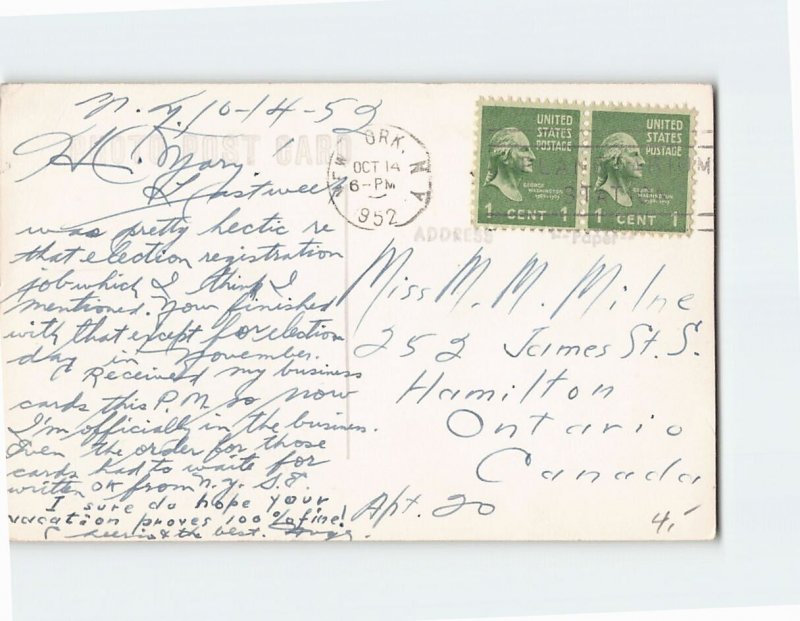 N.Y. 10-14-52
PHOTO POST CARD
Mary,
Last week
was pretty hectic re
that election registration
job which I think I
mentioned. Now finished
with that except for election
day in November.
Received my business
cards this P.M. so now
I'm officially in the business.
Even the order for those
cards had to waite for
written OK from N.Y. S.E.
I sure do hope your
vacation proves 100% fine!
Cheerio & the best.
NEW YORK, N.Y.
OCT 14
6-PM
1952
UNITED
STATES
POSTAGE
GEORGE
WASHINGTON
1789-1797
1 CENT 1
UNITED
STATES
POSTAGE
GEORGE
WASHINGTON
1789-1797
1 CENT 1
ADDRESS
Paper
Miss M. M. Milne
252 James St. S.
Hamilton
Ontario
Canada
Apt. 20
4.-